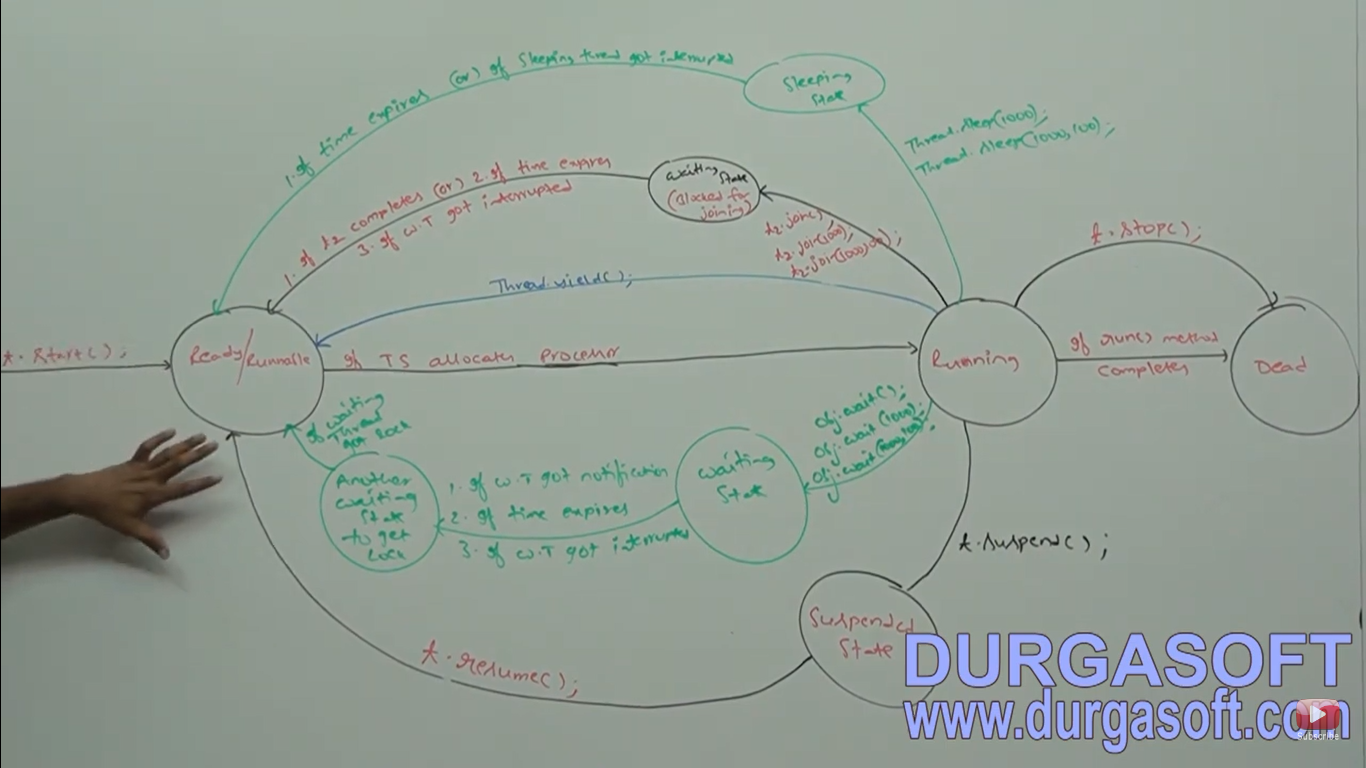 1. If time expires (or) If Sleeping thread got interrupted
Sleeping
State
Thread.sleep(1000);
Thread.sleep(1000,100);
1. If t2 completes (or) 2. If time expires
3. If W.T got interrupted
waiting
State
(Blocked for
joining)
t2.join();
t2.join(1000);
t2.join(1000,100);
t.stop();
Thread.yield();
t.start();
Ready/Runnable
If TS allocates processor
Running
If run() method
completes
Dead
If waiting
Thread
got lock
obj.wait();
obj.wait(1000);
obj.wait(1000,100);
Another
waiting
State
to get
lock
1. If W.T got notification
2. If time expires
3. If W.T got interrupted
waiting
State
t.suspend();
Suspended
State
t.resume();
DURGASOFT
www.durgasoft.com
Subscribe